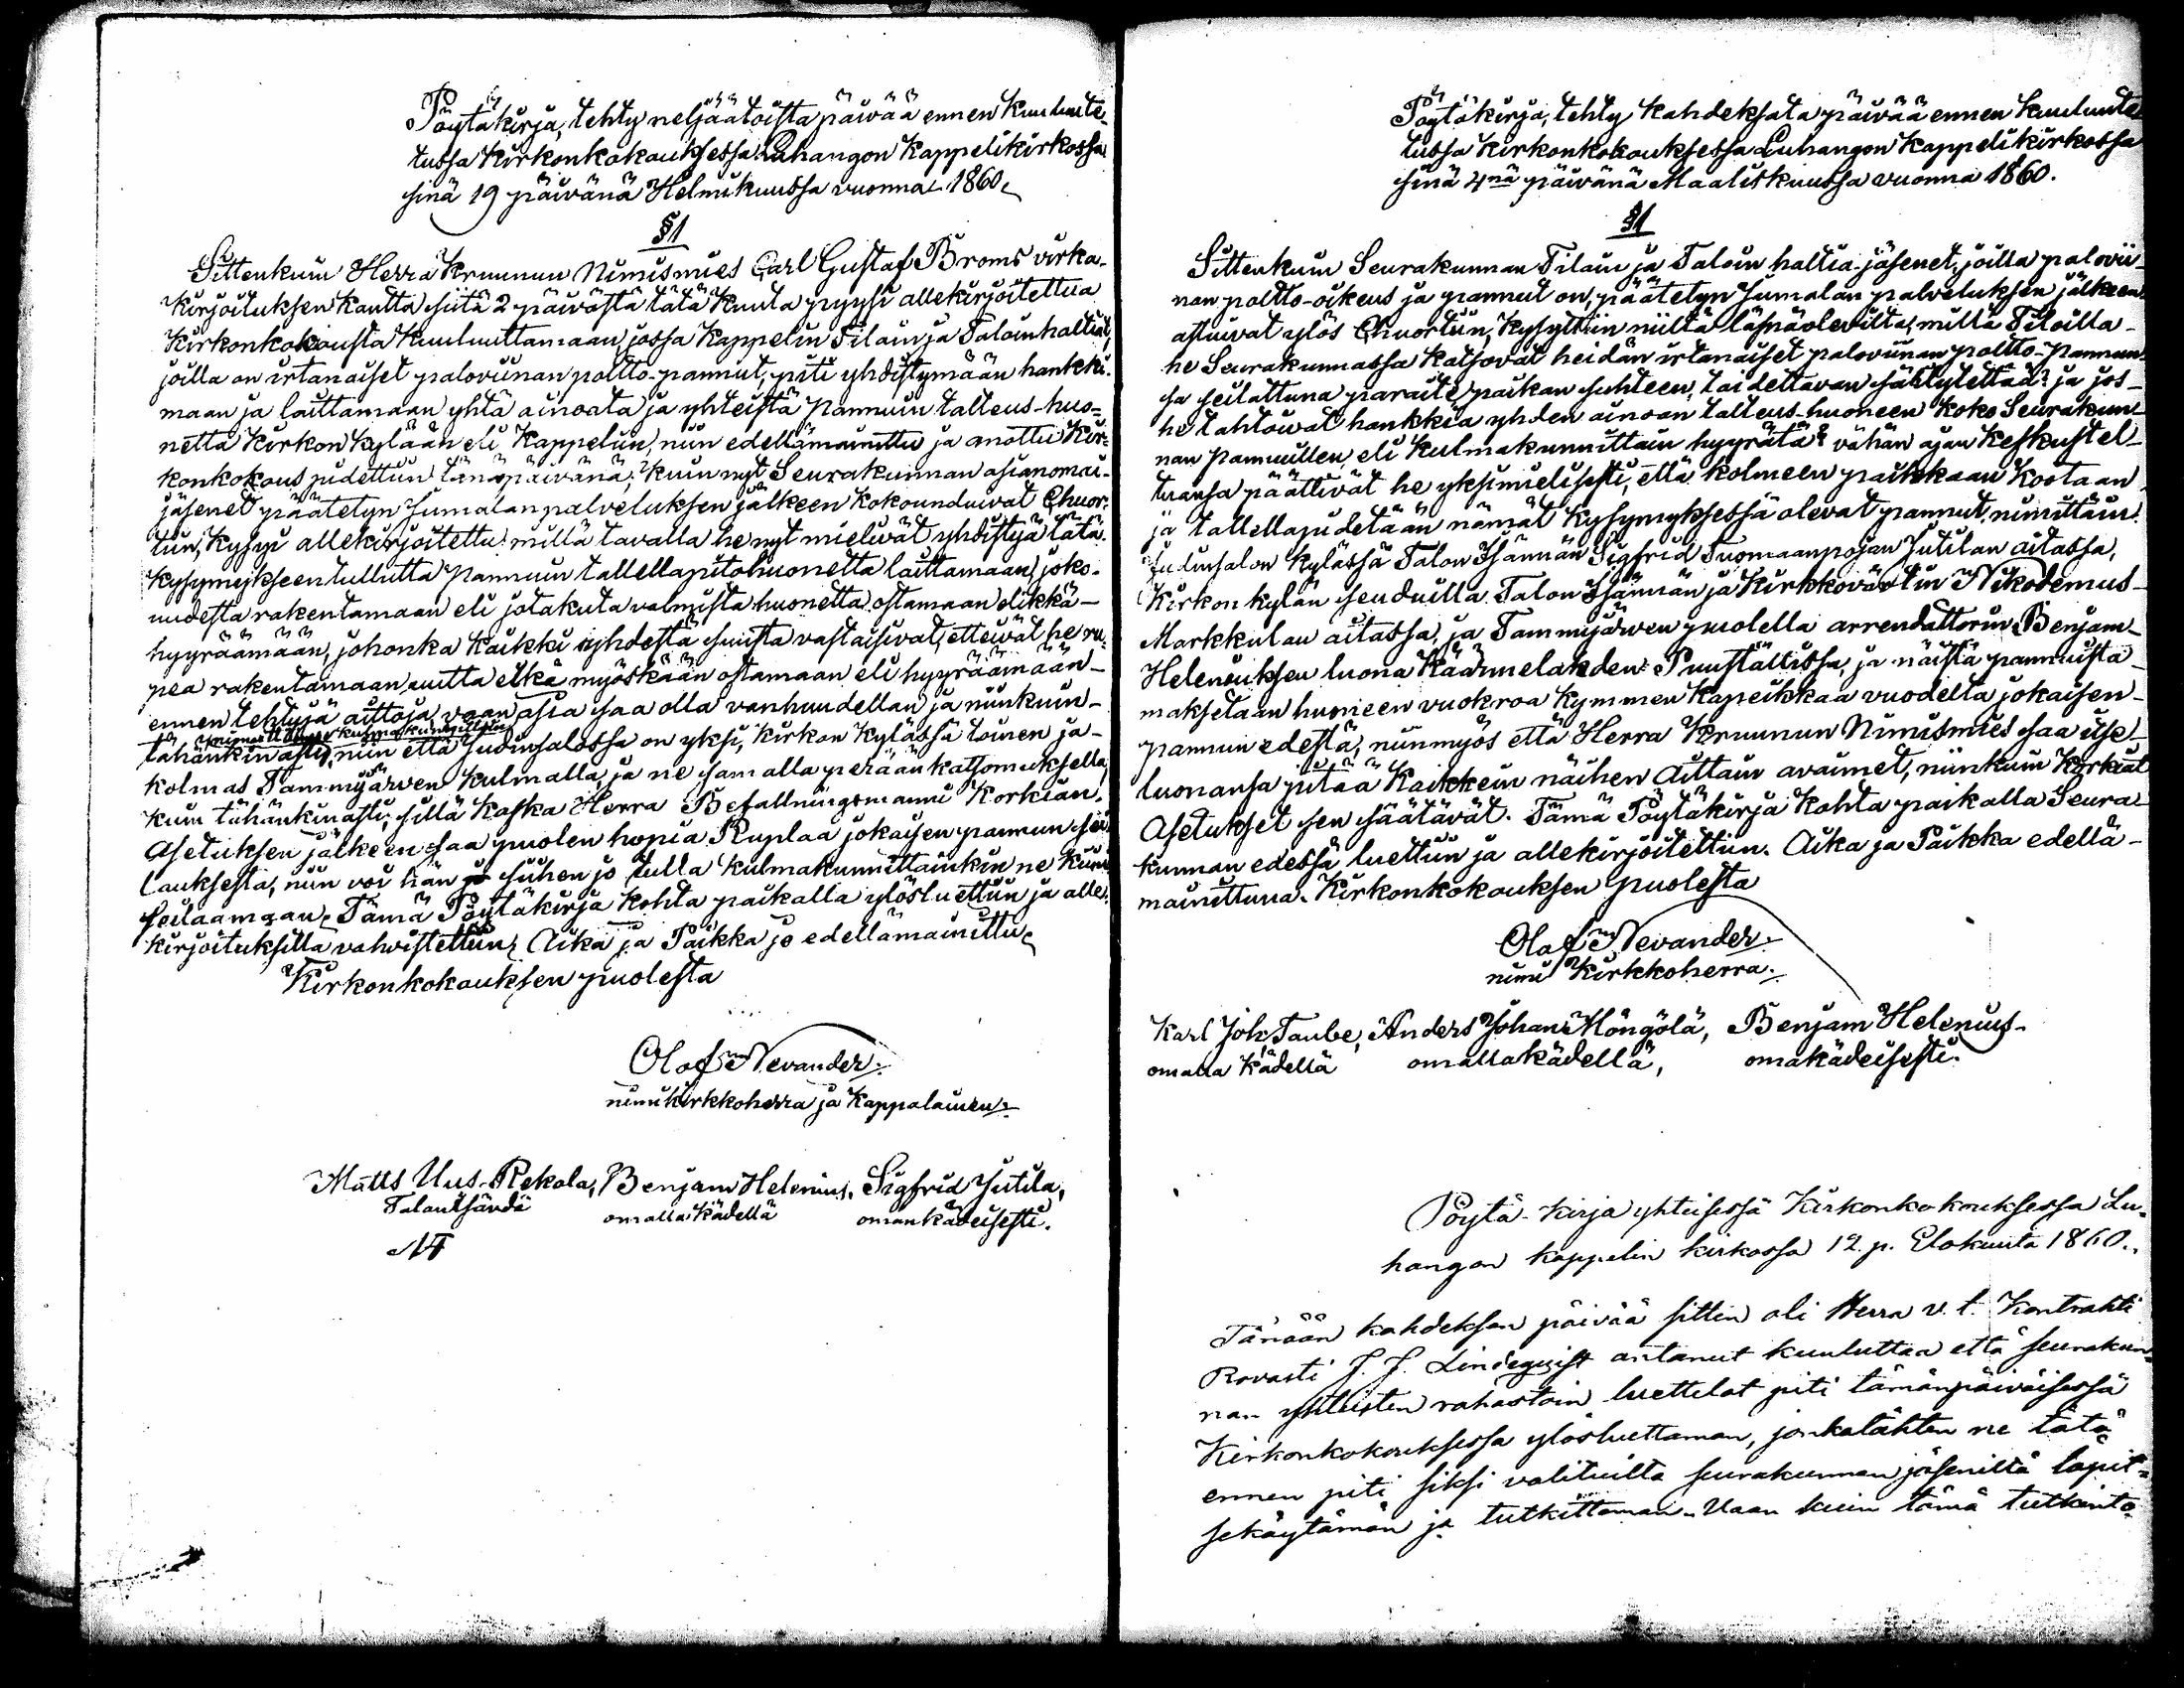 Pöytäkirja, tehty neljäätoista päivää ennen kuulute-
tussa Kirkonkokouksessa Luhangon Kappelikirkossa
sinä 19 päivänä Helmikuussa vuonna 1860.
§1
Sittenkuin Herra Kruunun Nimismies Carl Gustaf Broms virka-
kirjoituksen kautta siitä 2 päivästä tätä kuuta pyysi allekirjoitettua
Kirkonkokousta kuuluttamaan, jossa Kappelin Tilain ja Taloinhaltiat,
joilla on irtanaiset paloviinan poltto-pannut, piti yhdistymään hankki-
maan ja laittamaan yhtä ainoata ja yhteistä Pannuin talteus-huo-
netta Kirkon Kylään eli Kappeliin, niin edellämainittu ja anottu Kir-
konkokous pidettiin tänäpäivänä; kuin nyt Seurakunnan asianomai-
jäsenet päätetyn Jumalanpalveluksen jälkeen kokounduivat Chuor-
iin, Kysyi allekirjoitettu: millä tavalla he nyt mielivät yhdistyä tätä
Kysymykseen tullutta Pannuin tallellapitohuonetta laittamaan, joko-
uudesta rakentamaan eli jotakuta valmista huonetta ostamaan elikkä-
hyyräämään, johonka Kaikki yhdestä suusta vastaisivat, etteivät he ru-
pea rakentamaan uutta eikä myöskään ostamaan eli hyyräämään-
ennen tehtyjä aittoja, vaan asia saa olla vanhuudellan ja niinkuin-
tähänkin asti, niin että Judinsalossa on yksi, Kirkon Kylässä toinen ja-
kolmas Tammijärven Kulmalla, ja ne samalla perään katsomuksella,
kuin tähänkinasti; sillä koska Herra Befallningsmanni Korkian-
Asetuksen jälkeen saa puolen hopia Ruplaa jokaisen pannun sei-
lauksesta, niin voi hän siihen jo tulla Kulmakunnittainkin ne kiini
seilaamaan. Tämä Pöytäkirja kohta paikalla ylösluettiin ja alle-
kirjoituksilla vahvistettiin. Aika ja Paikka jo edellämainittu.
Kirkonkokouksen puolesta
Olof Nevander.
nimikirkkoherra ja Kappalainen.
Matts Uus-Rekola, Benjam Helenius, Sigfrid Jutila,
Talanisändä omalla Kädellä omankädeisesti.
Pöytäkirja, tehty kahdeksata päivää ennen kuulute
tussa Kirkonkokouksessa Luhangon Kappelikirkossa
sinä 4nä päivänä Maaliskuussa vuonna 1860.
§1
Sittenkuin Seurakunnan Tilain ja Taloin haltia-jäsenet, joilla palovii-
nan poltto-oikeus ja pannut on, päätetyn Jumalan palveluksen jälkeen
astuivat ylös Chuoriin, Kysyttiin niiltä läsnäolevilta, millä Tiloilla-
he Seurakunnassa katsovat heidän irtanaiset paloviinan poltto-Pannun-
sa seilattuna paraite paikan suhteen, taidettavan säilytettää? ja jos-
he tahtoivat hankkia yhden ainoan talteus-huoneen koko Seurakun-
nan Pannuillen, eli Kulmakunnittain hyyrätä? vähän ajan keskustel-
tuansa päättivät he yksimielisesti, että kolmeen paikkaan kootaan
ja tallellapidetään nämät Kysymyksessä olevat pannut, nimittäin:
Judinsalon kylässä Talon Isännän Sigfrid Tuomaanpojan Jutilan aitassa,
Kirkon kylän seuduilla Talon Isännän ja Kirkkovärtin Nikodemus-
Markkulan aitassa, ja Tammijärwen puolella arrendattorin Benjam-
Heleniuksen luona Käärmelahden Puuställissa, ja näistä pannuista-
maksetaan huoneen vuokroa Kymmen Kapeikkaa vuodelta jokaisen-
pannun edestä, niinmyös että Herra Kruunun Nimismies saa itse-
luonansa pitää Kaikkein näihen Aittain avaimet, niinkuin Korkiat
Asetukset sen säätävät. Tämä Pöytäkirja kohta paikalla Seura-
kunnan edessä luettiin ja allekirjoitettiin. Aika ja Paikka edellä-
mainittuna. Kirkonkokouksen puolesta
Olof Nevander.
nimi Kirkkoherra.
Karl Joh. Taube, Anders Johan Möngölä, Benjam Helenius
omalla Kädellä omallakädellä, omakädeisesti.
Pöytä-kirja yhteisessä Kirkonkokouksessa Lu-
hangon kappelin kirkossa 12 p. Elokuuta 1860.
Tänään kahdeksan päivää sitten oli Herra v. t. Kontrahti
Rovasti J. J. Lindeqvist antanut kuuluttaa että seurakun-
nan yhteisten rahastoin luettelot piti tämänpäiväisessä
Kirkonkokouksessa ylösluettaman, jonkatähten ne tätä
ennen piti siksi valituilta seurakunnan jäseniltä läpit-
sekäytämän ja tutkittaman. Vaan kuin tämä tutkinto